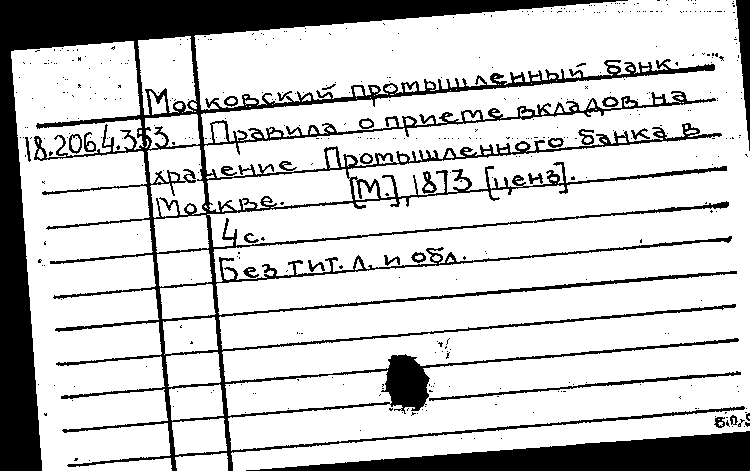 Московский промышленный банк.
18.206.4.353. Правила о приеме вкладов на
хранение Промышленного банка в
Москве. [М.], 1873 [ценз].
4 с.
Без тит. л. и обл.